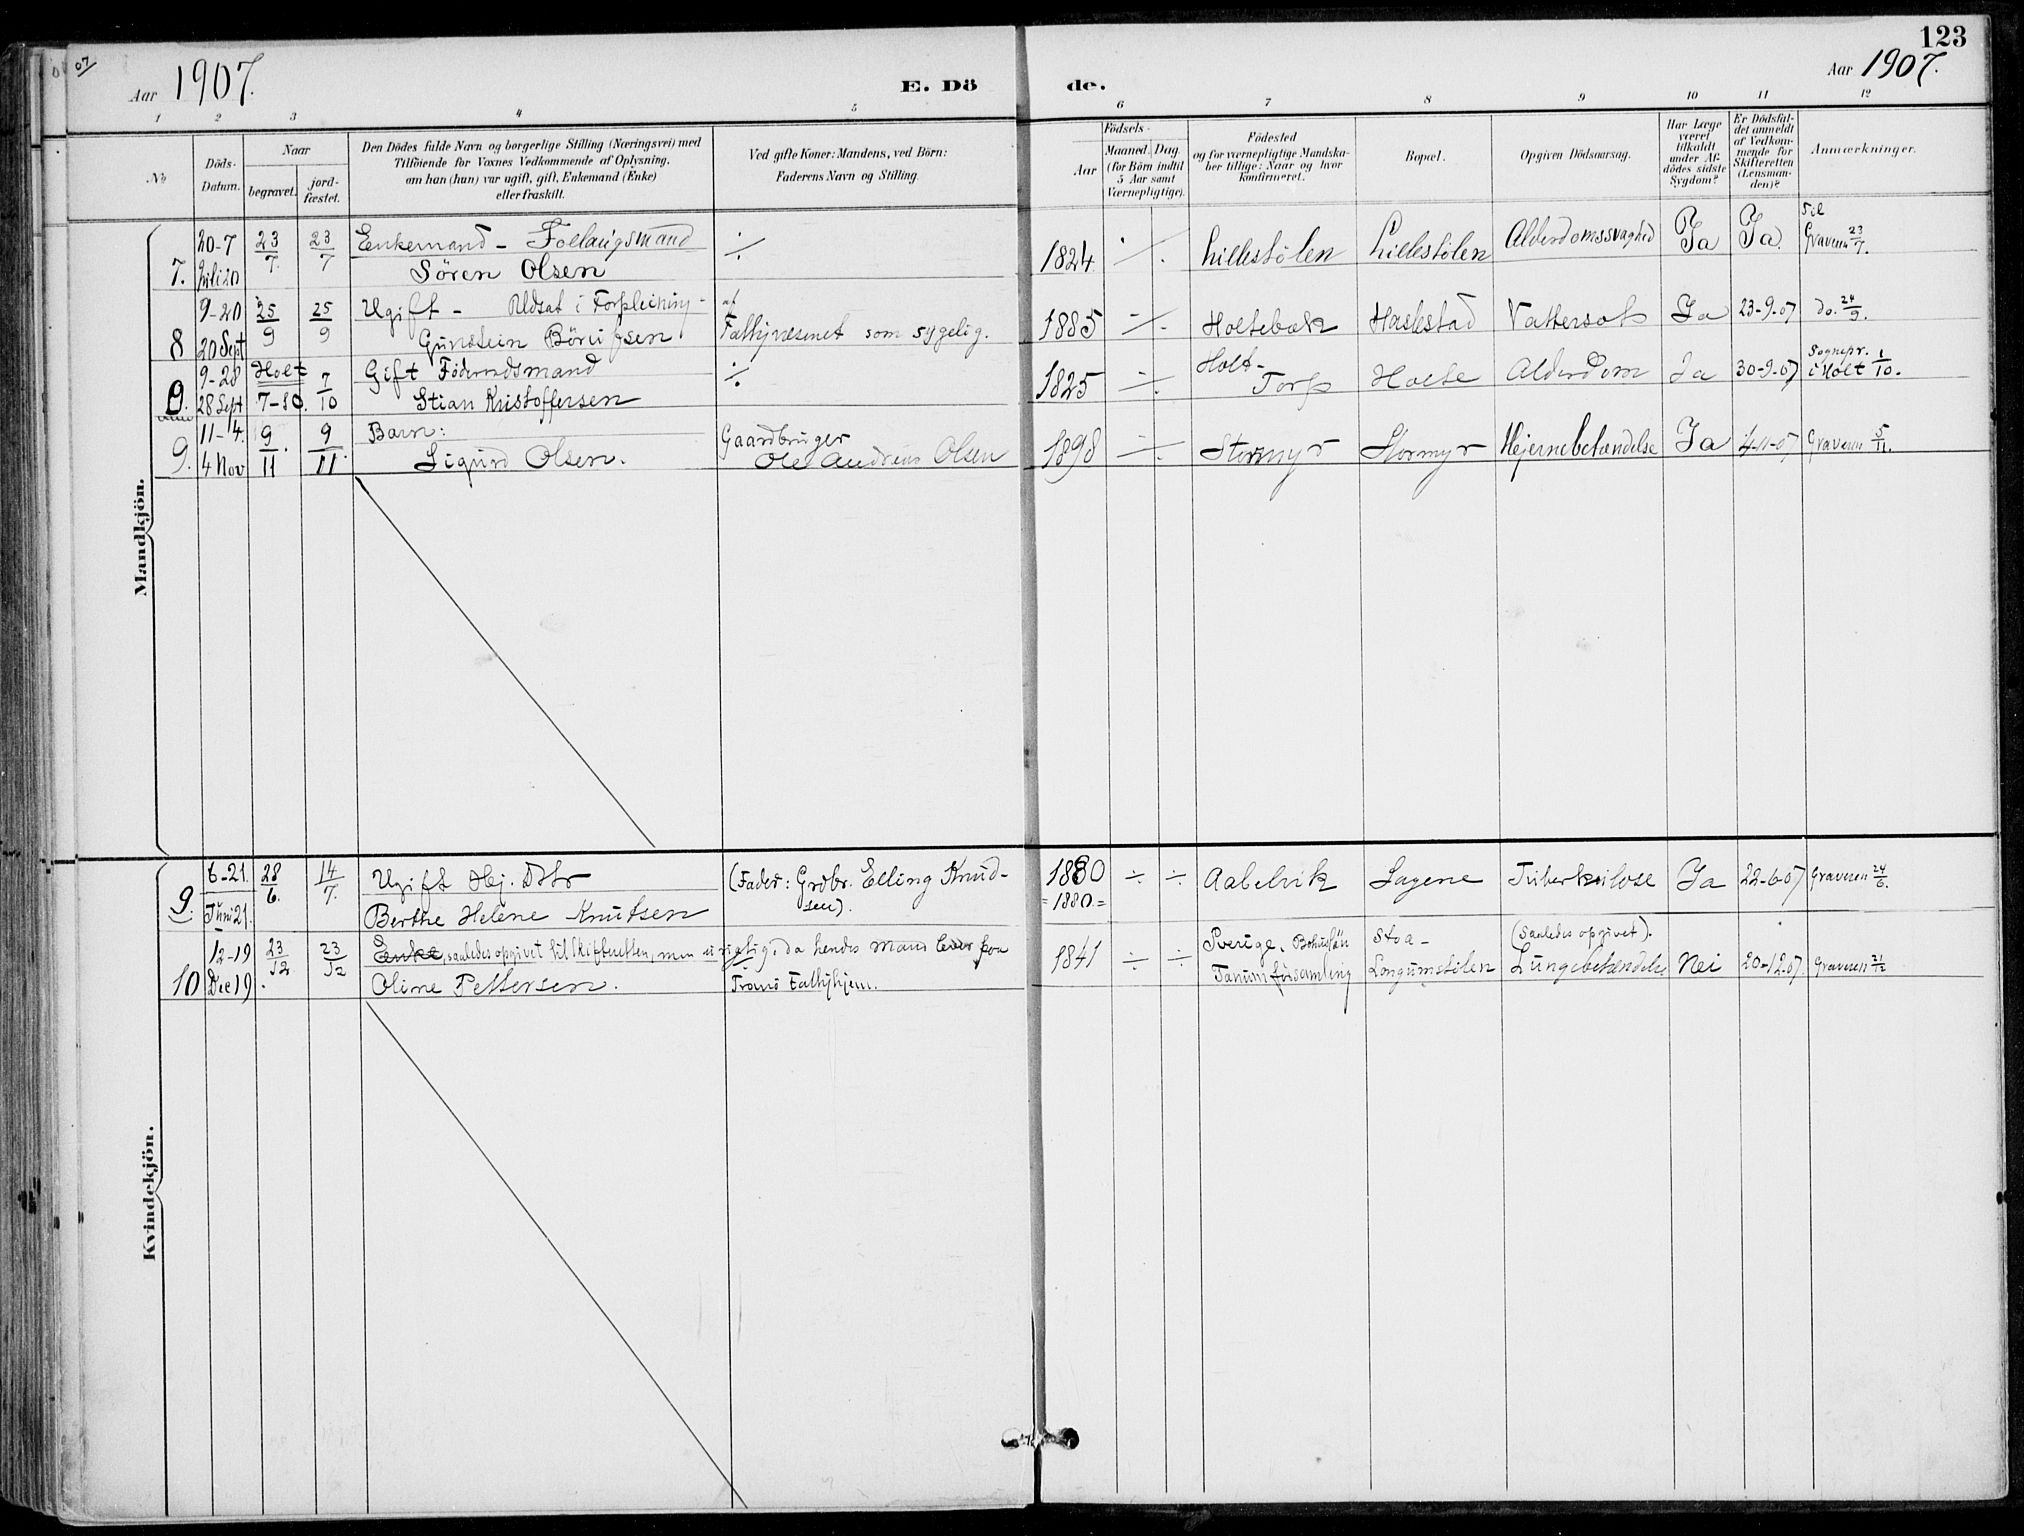 07
Aar 1907.
E. Dö de.
123
Aar 1907.
1 2 3 4 5 6 7 8 9 10 11 12
No
Döds-
Datum.
Naar
begravet.
jord-
fæstet.
Den Dödes fulde Navn og borgerlige Stilling (Næringsvei) med
Tilföiende for Voxnes Vedkommende af Oplysning,
om han (hun) var ugift, gift, Enkemand (Enke)
eller fraskilt.
Ved gifte Koner: Mandens, ved Börn:
Faderens Navn og Stilling.
Födsels-
Aar
Maaned. Dag
(for Börn indtil
5 Aar samt
Værnepligtige).
Födested
og for værnepligtige Mandska-
ber tillige: Naar og hvor
konfirmeret.
Bopæl.
Opgiven Dödsaarsag.
Har Læge
været
tilkaldt
under Af-
dödes sidste
Sygdom?
Er Dödsfal-
det anmeldt
af Vedkom-
mende for
Skifteretten
(Lensman-
den)?
Anmærkninger.
Mandkjön.
7. 20-7 23/7. 23/7 Enkemand - ÷ 1824. ÷ Lillestölen Lillestölen Alderdomssvaghed Ja Ja. Til
Juli 20 Sören Olsen Graven 23/7.
8 9-20 25/9 25/9 Ugift - Udsat i Forpleining - af 1885 ÷ Holtebæk Haslestad Ja 23-9-07 do. 24/9.
20 Sept Gundstein Fattigvæsenet som sygelig.
9. 9-28 Holt 7/10 Gift Föderaadsmand ÷ 1825 ÷ Holt- Holte Alderdom Ja 30-9-07 Sognepr. 1/10.
28 Sept 7-10. Stian Kristoffersen Torp i Holt
9. 11-4. 9/11. 9/11. Barn: Gaardbruger 1898 ÷ Stormyr Stormyr Hjernebetændelse Ja 4-11-07 Graveren 5/11.
4 Nov Sigurd Olsen. Ole Andreas Olsen
Kvindekjön.
9. 6-21. 28/6. 14/7. Ugift Hj. Dttr (Fader: Grdbr. Elling Knud- 1880 ÷ ÷ Aabelvik Sagene Tuberkulose Ja 22-6-07 Graveren 24/6.
Juni 21. Berthe Helene Knutsen sen). = 1880. =
10 12-19 23/12. 23/12 Enke, saaledes opgivet til Skifteretten, men urigtig, da hendes Mand lever paa 1841 ÷ ÷ Sverige. Bohuslän Stoa- (Saaledes opgivet). Nei 20-12.07. Graveren 21/12
Dec 19 Oline Pettersen. Tromö Fattighjem. Tanum församling Longumstölen Lungebetændelse